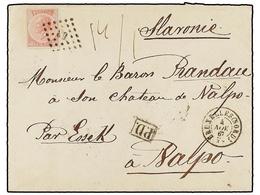 Slavonie
Monsieur le Baron Prandau
à Son chateau de Valpo
Par Essek
PD
à Valpo